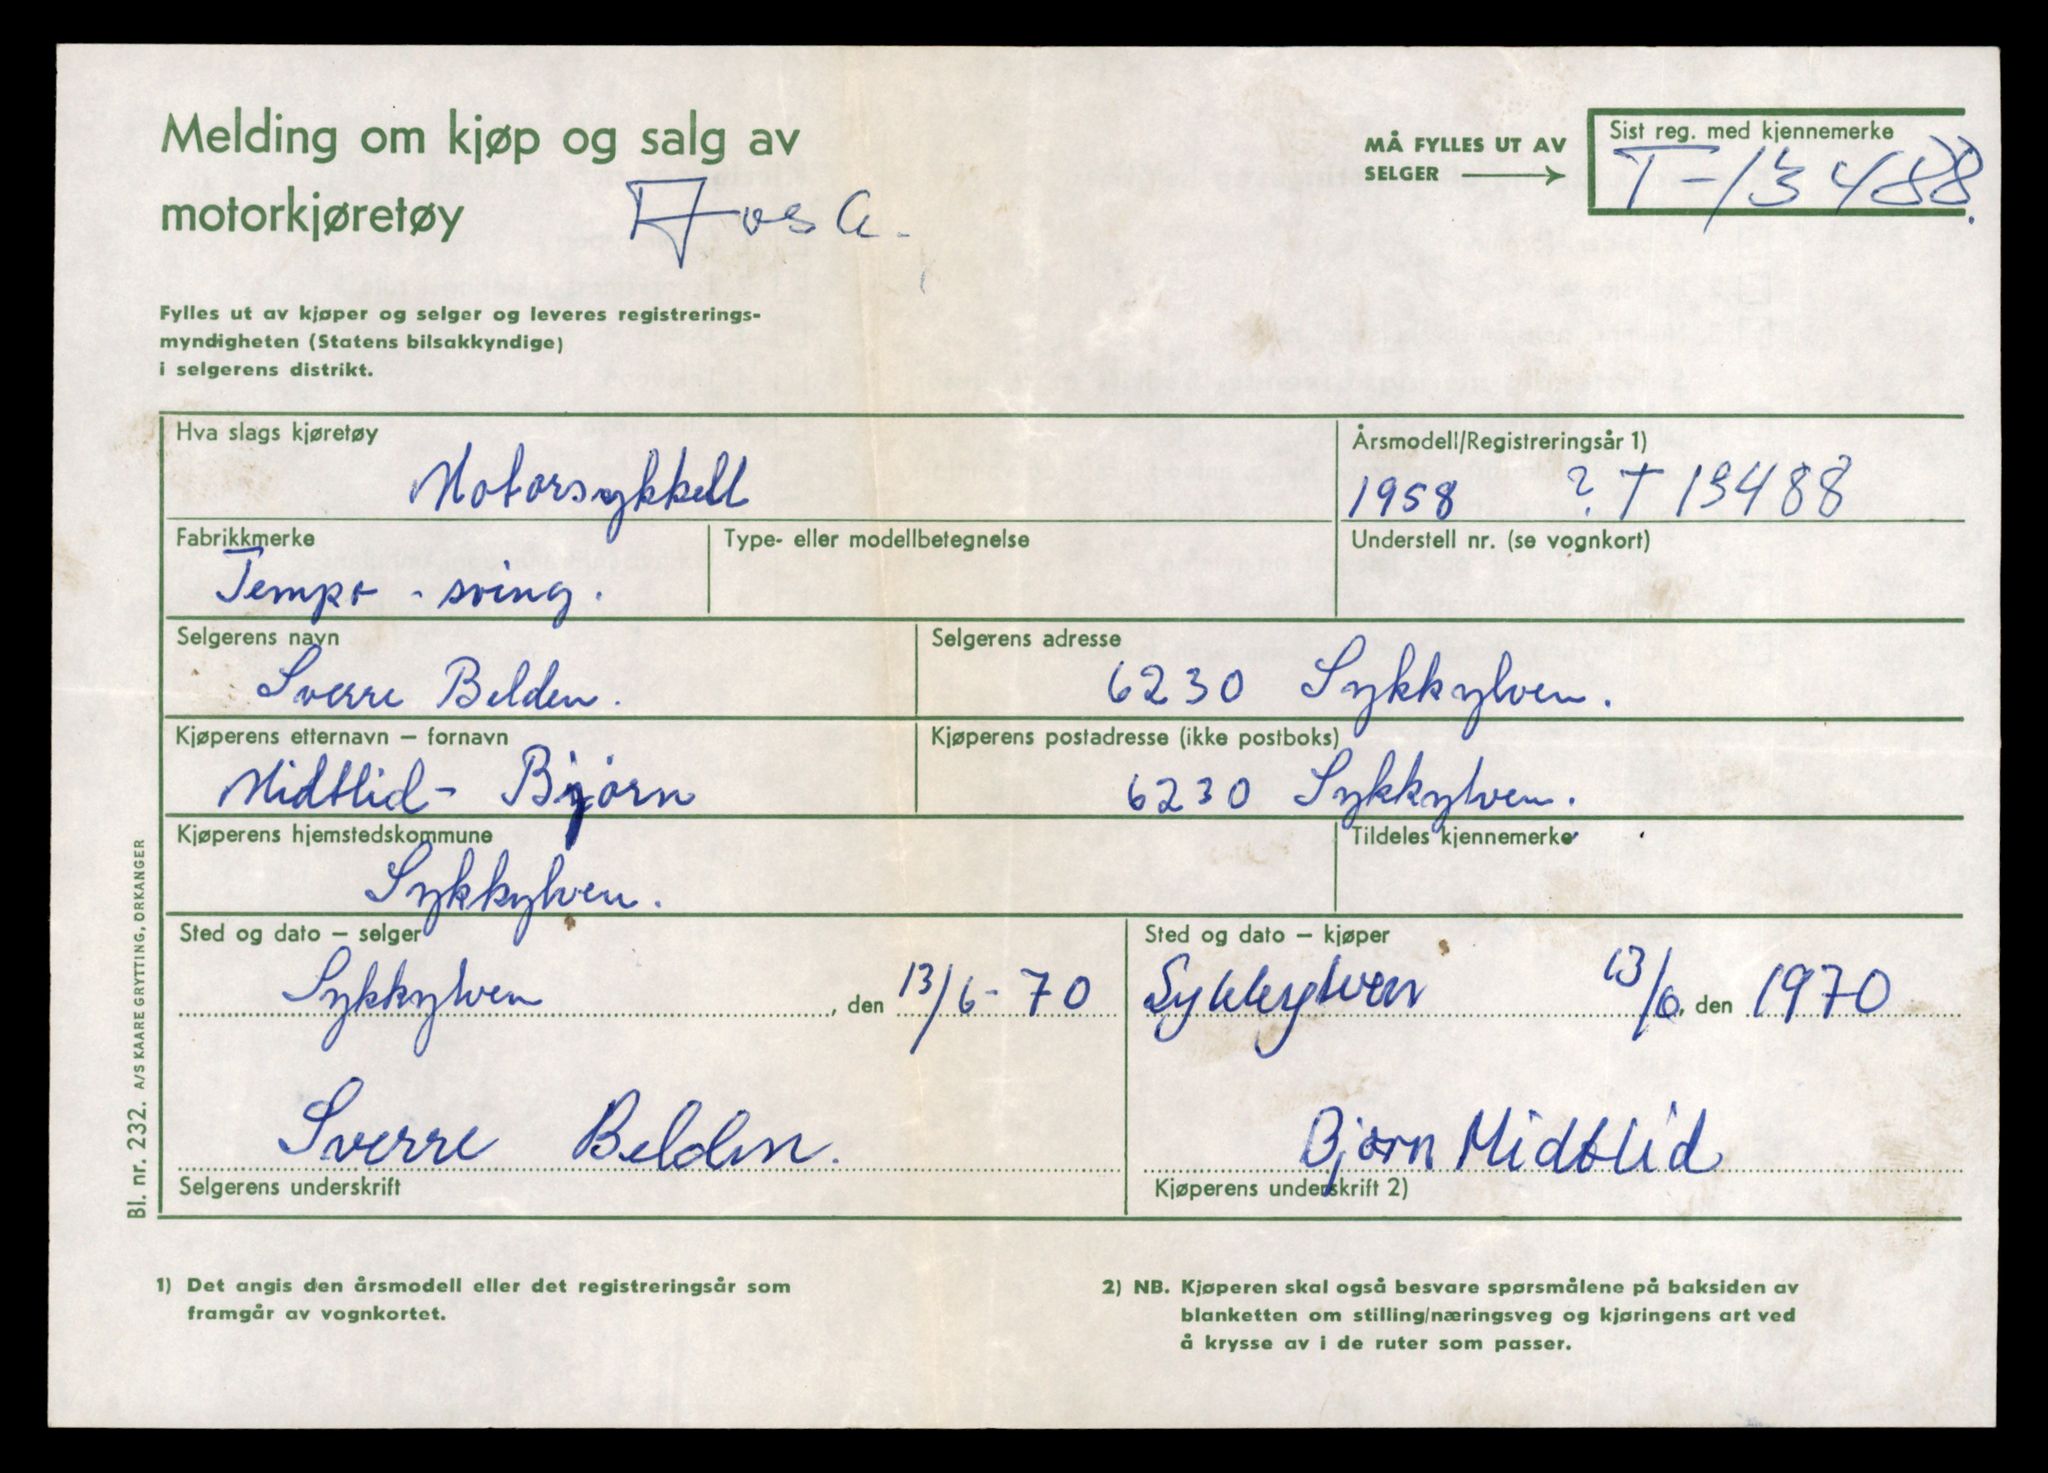 Melding om kjøp og salg av
motorkjøretøy
MÅ FYLLES UT AV
SELGER
Sist reg. med kjennemerke
T-13488.
Fylles ut av kjøper og selger og leveres registrerings-
myndigheten (Statens bilsakkyndige)
i selgerens distrikt.
Hva slags kjøretøy
Motorsykkell
Årsmodell/Registreringsår 1)
1958 ? T 13488
Fabrikkmerke
Tempo - sving.
Type- eller modellbetegnelse
Understell nr. (se vognkort)
Selgerens navn
Sverre Belden.
Selgerens adresse
6230 Sykkylven.
Kjøperens etternavn – fornavn
Midtlid - Bjørn
Kjøperens postadresse (ikke postboks)
6230 Sykkylven.
Kjøperens hjemstedskommune
Sykkylven.
Tildeles kjennemerke
Sted og dato – selger
Sykkylven, den 13/6-70
Sted og dato – kjøper
Sykkylven 13/6, den 1970
Sverre Belden.
Selgerens underskrift
Bjørn Midtlid
Kjøperens underskrift 2)
1) Det angis den årsmodell eller det registreringsår som
framgår av vognkortet.
2) NB. Kjøperen skal også besvare spørsmålene på baksiden av
blanketten om stilling/næringsveg og kjøringens art ved
å krysse av i de ruter som passer.
Bl. nr. 232. A/S KAARE GRYTTING, ORKANGER